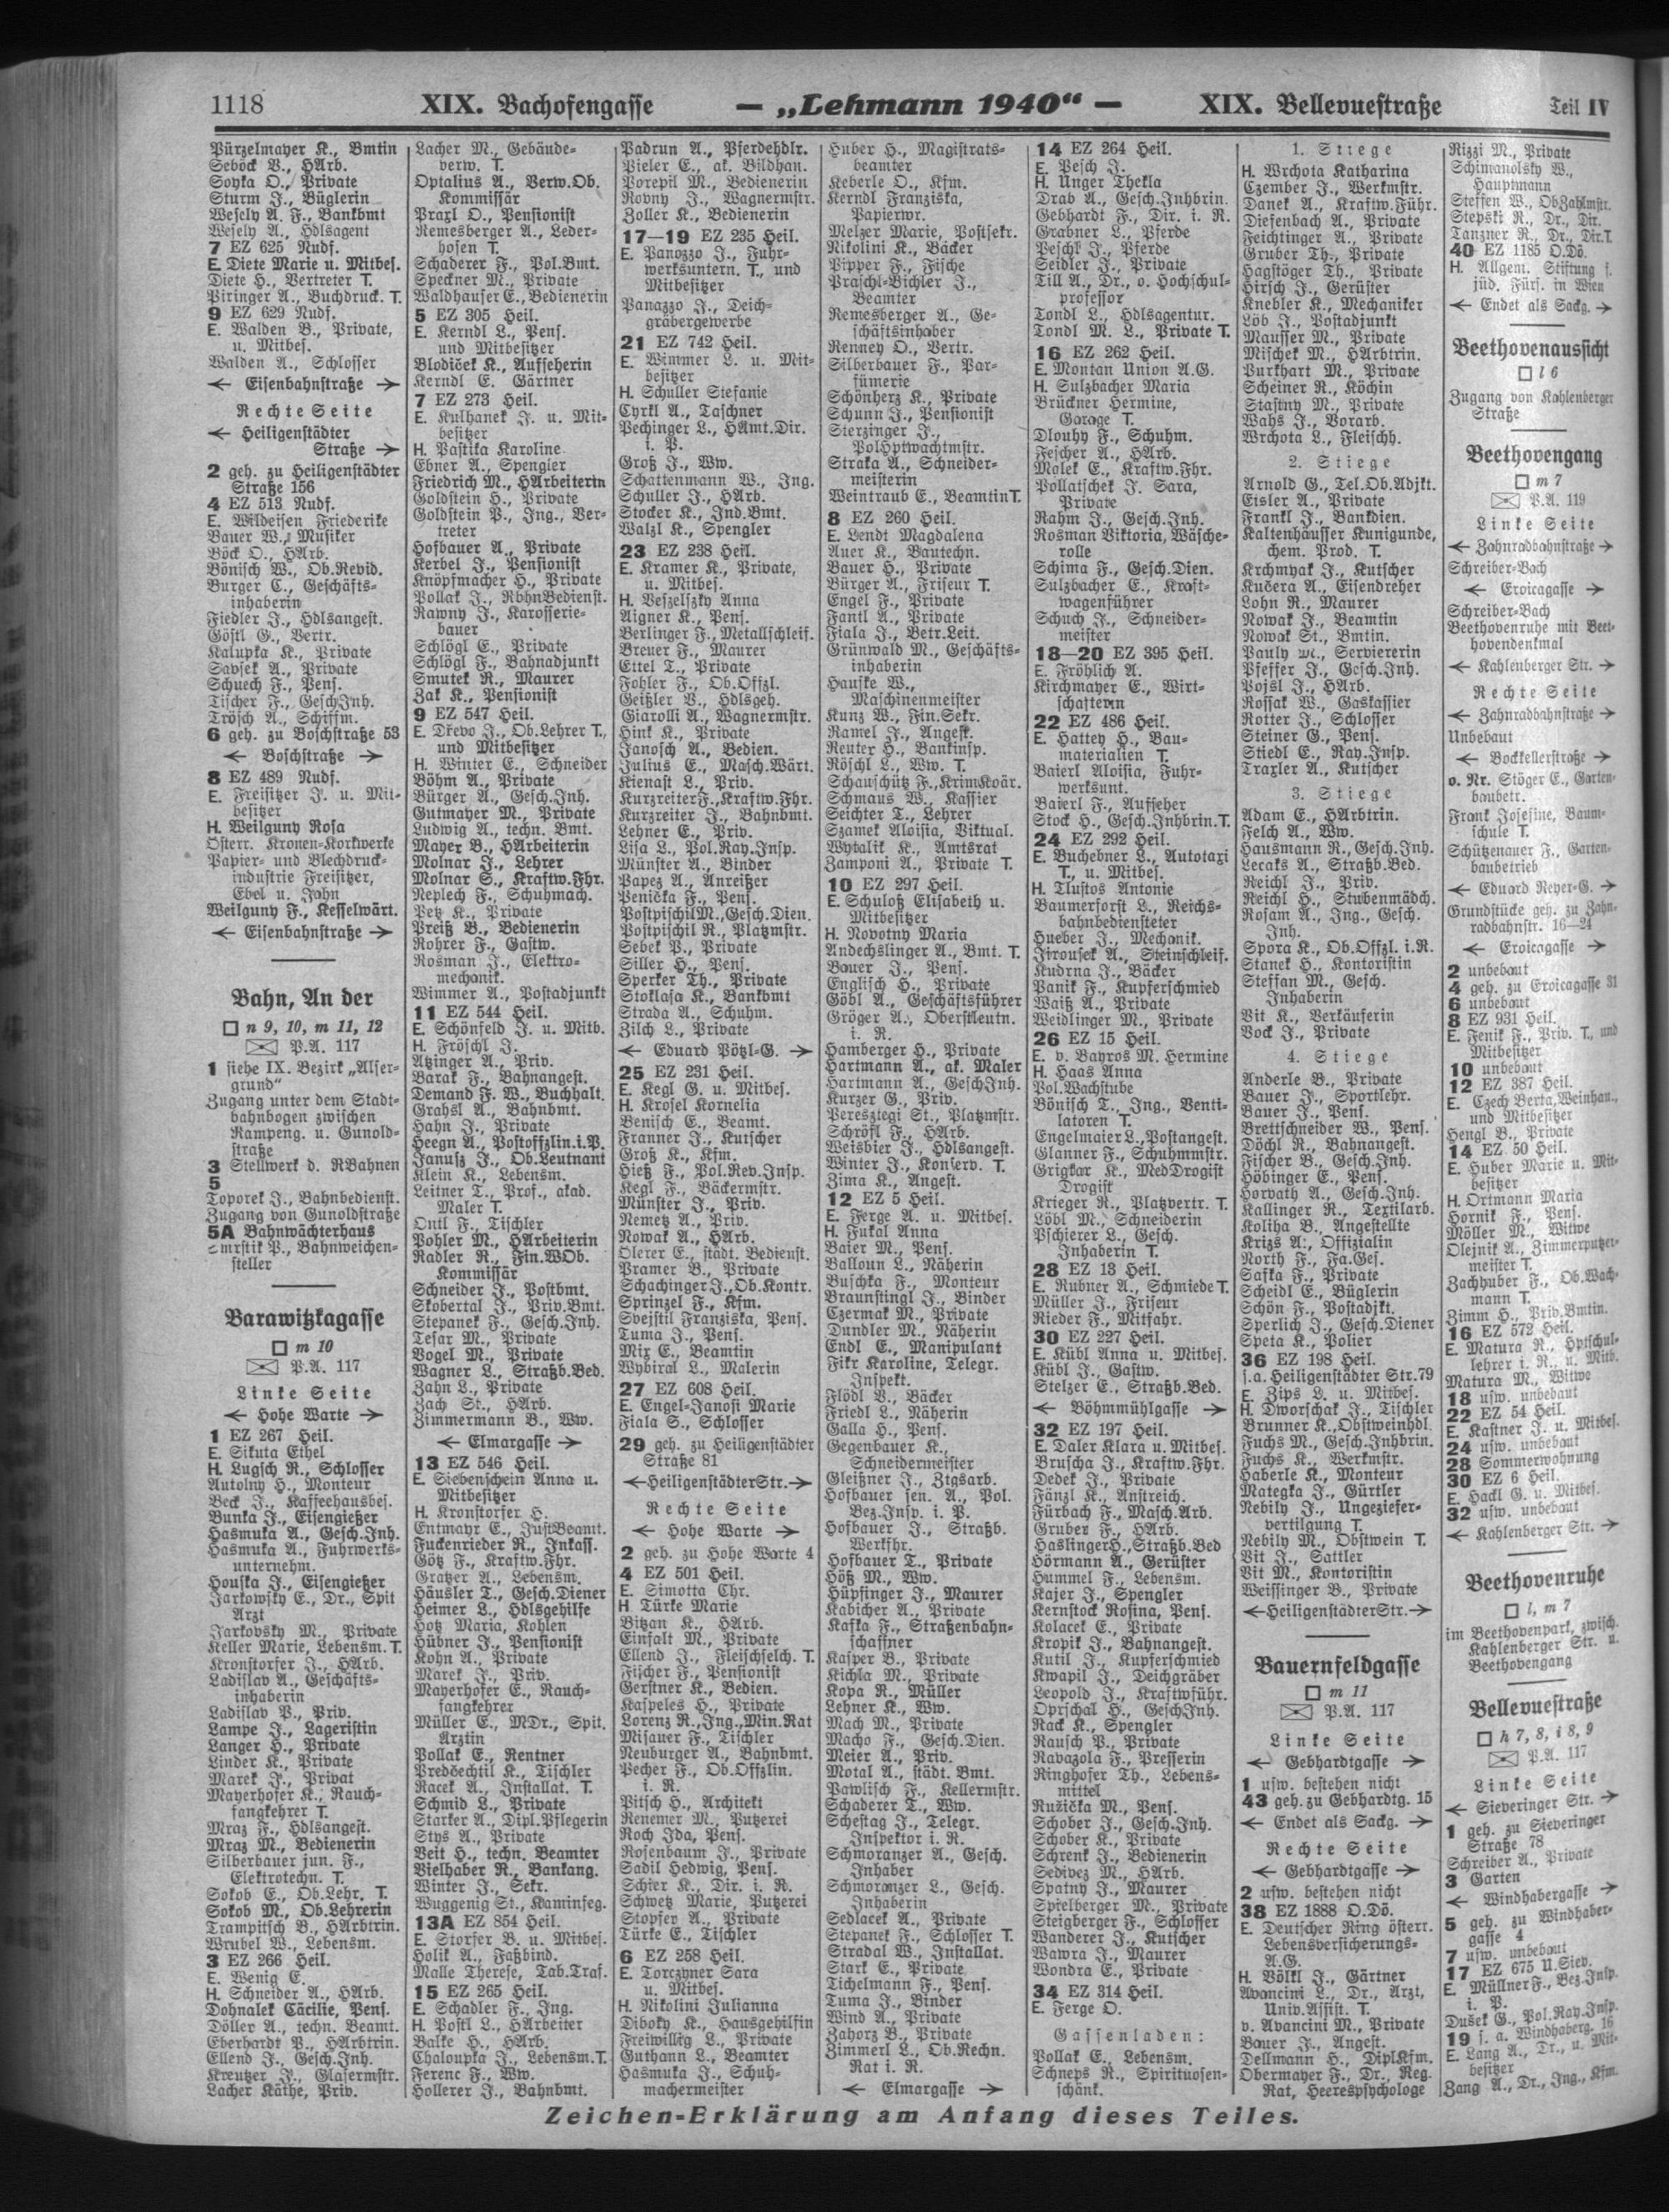 1118
XIX. Bachofengasse
— „Lehmann 1940“ —
XIX. Bellevuestraße
Teil IV
Pürzelmayer K., Bmtin
Seböck V., HArb.
Soyka O., Private
Sturm J., Büglerin
Wesely A. F., Bankbmt
Wesely A., Hdlsagent
7 EZ 625 Nudf.
E. Diete Marie u. Mitbes.
Diete H., Vertreter T.
Piringer A., Buchdruck. T.
9 EZ 629 Nudf.
E. Walden B., Private,
u. Mitbes.
Walden A., Schlosser
← Eisenbahnstraße →
Rechte Seite
← Heiligenstädter
Straße →
2 geh. zu Heiligenstädter
Straße 156
4 EZ 513 Nudf.
E. Wildeisen Friederike
Bauer W., Musiker
Böck O., HArb.
Bönisch W., Ob.Revid.
Burger C., Geschäfts-
inhaberin
Fiedler J., Hdlsangest.
Göstl G., Vertr.
Kalupka K., Private
Savsek A., Private
Schuech F., Pens.
Tischer F., GeschInh.
Trösch A., Schiffm.
6 geh. zu Boschstraße 53
← Boschstraße →
8 EZ 489 Nudf.
E. Freisitzer J. u. Mit-
besitzer
H. Weilguny Rosa
Österr. Kronen-Korkwerke
Papier- und Blechdruck-
industrie Freisitzer,
Ebel u. Jahn
Weilguny F., Kesselwärt.
← Eisenbahnstraße →
Bahn, An der
□ n 9, 10, m 11, 12
P.A. 117
1 siehe IX. Bezirk „Alser-
grund“
Zugang unter dem Stadt-
bahnbogen zwischen
Rampeng. u. Gunold-
straße
3 Stellwerk d. RBahnen
5
Toporek J., Bahnbedienst.
Zugang von Gunoldstraße
5A Bahnwächterhaus
Smrstik P., Bahnweichen-
steller
Barawitzkagasse
□ m 10
P.A. 117
Linke Seite
← Hohe Warte →
1 EZ 267 Heil.
E. Sikuta Ethel
H. Lugsch R., Schlosser
Autolny H., Monteur
Beck J., Kaffeehausbes.
Bunka J., Eisengießer
Hasmuka A., Gesch.Inh.
Hasmuka A., Fuhrwerks-
unternehm.
Houska J., Eisengießer
Jarkowsky E., Dr., Spit
Arzt
Jarkovsky M., Private
Keller Marie, Lebensm. T.
Kronstorfer J., HArb.
Ladislav A., Geschäfts-
inhaberin
Ladislav P., Priv.
Lampe J., Lageristin
Langer H., Private
Linder K., Private
Marek J., Privat
Mayerhofer K., Rauch-
fangkehrer T.
Mraz F., Hdlsangest.
Mraz M., Bedienerin
Silberbauer jun. F.,
Elektrotechn. T.
Sokob E., Ob.Lehr. T.
Sokob M., Ob.Lehrerin
Trampitsch B., HArbtrin.
Wrubel W., Lebensm.
3 EZ 266 Heil.
E. Wenig E.
H. Schneider A., HArb.
Dohnalek Cäcilie, Pens.
Döller A., techn. Beamt.
Eberhardt P., HArbtrin.
Ellend J., Gesch.Inh.
Kreutzer J., Glasermstr.
Lacher Käthe, Priv.
Lacher M., Gebäude-
verw. T.
Optalius A., Verw.Ob.
Kommissär
Praxl O., Pensionist
Remesberger A., Leder-
hosen T.
Schaderer F., Pol.Bmt.
Speckner M., Private
Waldhauser E., Bedienerin
5 EZ 305 Heil.
E. Kerndl L., Pens.
und Mitbesitzer
Blodiček K., Aufseherin
Kerndl E. Gärtner
7 EZ 273 Heil.
E. Kulhanek J. u. Mit-
besitzer
H. Pastika Karoline
Ebner A., Spengler
Friedrich M., HArbeiterin
Goldstein H., Private
Goldstein P., Ing., Ver-
treter
Hofbauer A., Private
Kerbel J., Pensionist
Knöpfmacher H., Private
Pollak J., RbhnBedienst.
Rawny J., Karosserie-
bauer
Schlögl E., Private
Schlögl F., Bahnadjunkt
Smutek R., Maurer
Zak K., Pensionist
9 EZ 547 Heil.
E. Dřevo J., Ob.Lehrer T.,
und Mitbesitzer
H. Winter E., Schneider
Böhm A., Private
Bürger A., Gesch.Inh.
Gutmayer M., Private
Ludwig A., techn. Bmt.
Mayer B., HArbeiterin
Molnar J., Lehrer
Molnar S., Kraftw.Fhr.
Neplech F., Schuhmach.
Petz K., Private
Preiß B., Bedienerin
Rohrer F., Gastw.
Rosman J., Elektro-
mechanik.
Wimmer A., Postadjunkt
11 EZ 544 Heil.
E. Schönfeld J. u. Mitb.
H. Fröschl J.
Atzinger A., Priv.
Barak F., Bahnangest.
Demand F. W., Buchhalt.
Grahsl A., Bahnbmt.
Hahn J., Private
Heegn A., Postoffzlin.i.P.
Janusz J., Ob.Leutnant
Klein K., Lebensm.
Leitner T., Prof., akad.
Maler T.
Ontl F., Tischler
Pohler M., HArbeiterin
Radler R., Fin.WOb.
Kommissär
Schneider J., Postbmt.
Skobertal J., Priv.Bmt.
Stepanek F., Gesch.Inh.
Tesar M., Private
Vogel M., Private
Wagner L., Straßb.Bed.
Zahn L., Private
Zach St., HArb.
Zimmermann B., Ww.
← Elmargasse →
13 EZ 546 Heil.
E. Siebenschein Anna u.
Mitbesitzer
H. Kronstorfer H.
Entmayr E., JustBeamt.
Fuckenrieder R., Inkass.
Götz F., Kraftw.Fhr.
Gratzer A., Lebensm.
Häusler T., Gesch.Diener
Heimer L., Hdlsgehilfe
Hotz Maria, Kohlen
Hübner J., Pensionist
Kohn A., Private
Marek J., Priv.
Mayerhofer E., Rauch-
fangkehrer
Müller E., MDr., Spit.
Ärztin
Pollak E., Rentner
Předčechtil K., Tischler
Racek A., Installat. T.
Schmid L., Private
Starker A., Dipl.Pflegerin
Stys A., Private
Veit H., techn. Beamter
Vielhaber R., Bankang.
Winter J., Sekr.
Wuggenig St., Kaminfeg.
13A EZ 854 Heil.
E. Storfer B. u. Mitbes.
Holik A., Faßbind.
Malle Therese, Tab.Traf.
15 EZ 265 Heil.
E. Schadler F., Ing.
H. Postl L., HArbeiter
Balke H., HArb.
Chaloupka J., Lebensm.T.
Ferenc F., Ww.
Hollerer J., Bahnbmt.
Padrun A., Pferdehdlr.
Pieler E., ak. Bildhau.
Porepil M., Bedienerin
Rovny J., Wagnermstr.
Zoller K., Bedienerin
17—19 EZ 235 Heil.
E. Panozzo J., Fuhr-
werksuntern. T., und
Mitbesitzer
Panazzo J., Deich-
gräbergewerbe
21 EZ 742 Heil.
E. Wimmer L. u. Mit-
besitzer
H. Schuller Stefanie
Cyrkl A., Taschner
Pechinger L., HAmt.Dir.
i. P.
Groß J., Ww.
Schattenmann W., Ing.
Schuller J., HArb.
Stocker K., Ind.Bmt.
Walzl K., Spengler
23 EZ 238 Heil.
E. Kramer K., Private,
u. Mitbes.
H. Veszelszky Anna
Aigner K., Pens.
Berlinger F., Metallschleif.
Breuer F., Maurer
Ettel T., Private
Fohler F., Ob.Offzl.
Geißler V., Hdlsgeh.
Giarolli A., Wagnermstr.
Hink K., Private
Janosch A., Bedien.
Julius E., Masch.Wärt.
Kienast L., Priv.
Kurzreiter F., Kraftw.Fhr.
Kurzreiter J., Bahnbmt.
Lehner E., Priv.
Lisa L., Pol.Ray.Insp.
Münster A., Binder
Papez A., Anreißer
Penička F., Pens.
Postpischil M., Gesch.Dien.
Postpischil R., Platzmstr.
Sebek P., Private
Siller H., Pens.
Sperker Th., Private
Stoklasa K., Bankbmt
Strada A., Schuhm.
Zilch L., Private
← Eduard Pötzl-G. →
25 EZ 231 Heil.
E. Kegl G. u. Mitbes.
H. Krosel Kornelia
Benisch E., Beamt.
Franner J., Kutscher
Groß K., Kfm.
Hietz F., Pol.Rev.Insp.
Kegl F., Bäckermstr.
Münster J., Priv.
Nemetz A., Priv.
Nowak A., HArb.
Olerer E., städt. Bedienst.
Pramer B., Private
Schachinger J., Ob.Kontr.
Sprinzel F., Kfm.
Svejstil Franziska, Pens.
Tuma J., Pens.
Mix E., Beamtin
Wybiral L., Malerin
27 EZ 608 Heil.
E. Engel-Janosi Marie
Fiala S., Schlosser
29 geh. zu Heiligenstädter
Straße 81
← HeiligenstädterStr. →
Rechte Seite
← Hohe Warte →
2 geh. zu Hohe Warte 4
4 EZ 501 Heil.
E. Simotta Chr.
H. Türke Marie
Bitzan K., HArb.
Einfalt M., Private
Ellend J., Fleischselch. T.
Fischer F., Pensionist
Gerstner K., Bedien.
Kaspeles H., Private
Lorenz R., Ing., Min.Rat
Misauer F., Tischler
Neuburger A., Bahnbmt.
Pecher F., Ob.Offzlin.
i. R.
Pitsch H., Architekt
Renemer M., Putzerei
Roch Ida, Pens.
Rosenbaum J., Private
Sadil Hedwig, Pens.
Schier K., Dir. i. R.
Schwetz Marie, Putzerei
Stopfer A., Private
Türke E., Tischler
6 EZ 258 Heil.
E. Torczyner Sara
u. Mitbes.
H. Nikolini Julianna
Diboky K., Hausgehilfin
Freiwillig L., Private
Guthann L., Beamter
Hasmuka J., Schuh-
machermeister
Huber H., Magistrats-
beamter
Keberle O., Kfm.
Kerndl Franziska,
Papierwr.
Melzer Marie, Postsekr.
Nikolini K., Bäcker
Pipper F., Fische
Praschl-Bichler J.,
Beamter
Remesberger A., Ge-
schäftsinhaber
Renney O., Vertr.
Silberbauer F., Par-
fümerie
Schönherz K., Private
Schunn J., Pensionist
Sterzinger J.,
PolHptwachtmstr.
Straka A., Schneider-
meisterin
Weintraub E., Beamtin T.
8 EZ 260 Heil.
E. Lendt Magdalena
Auer K., Bautechn.
Bauer H., Private
Bürger A., Friseur T.
Engel F., Private
Fantl A., Private
Fiala J., Betr.Leit.
Grünwald M., Geschäfts-
inhaberin
Hauske W.,
Maschinenmeister
Kunz W., Fin.Sekr.
Ramel J., Angest.
Reuter H., Bankinsp.
Röschl L., Ww. T.
Schauschütz F., KrimKoär.
Schmaus W., Kassier
Seichter T., Lehrer
Szamek Aloisia, Viktual.
Wytalik K., Amtsrat
Zamponi A., Private T.
10 EZ 297 Heil.
E. Schuloß Elisabeth u.
Mitbesitzer
H. Novotny Maria
Andechslinger A., Bmt. T.
Bauer J., Pens.
Englisch H., Private
Göbl A., Geschäftsführer
Gröger A., Oberstleutn.
i. R.
Hamberger H., Private
Hartmann A., ak. Maler
Hartmann A., GeschInh.
Kurzer G., Priv.
Peresztegi St., Platzmstr.
Schröfl F., HArb.
Weisbier J., Hdlsangest.
Winter J., Konserv. T.
Zima K., Angest.
12 EZ 5 Heil.
E. Ferge A. u. Mitbes.
H. Fukal Anna
Baier M., Pens.
Balloun L., Näherin
Buschka F., Monteur
Braunstingl J., Binder
Czermak M., Private
Dundler M., Näherin
Endl E., Manipulant
Fikr Karoline, Telegr.
Inspekt.
Flödl B., Bäcker
Friedl L., Näherin
Galla H., Pens.
Gegenbauer K.,
Schneidermeister
Gleißner J., Ztgsarb.
Hofbauer sen. A., Pol.
Bez.Insp. i. P.
Hofbauer J., Straßb.
Werkfhr.
Hofbauer T., Private
Höß M., Ww.
Hüpfinger J., Maurer
Kabicher A., Private
Kafka F., Straßenbahn-
schaffner
Kasper B., Private
Kichla M., Private
Kopa R., Müller
Lehner K., Ww.
Mach M., Private
Macho F., Gesch.Dien.
Meier A., Priv.
Motal A., städt. Bmt.
Pawlisch F., Kellermstr.
Schaderer T., Ww.
Schestag J., Telegr.
Inspektor i. R.
Schmoranzer A., Gesch.
Inhaber
Schmoranzer L., Gesch.
Inhaberin
Sedlacek A., Private
Stepanek F., Schlosser T.
Stradal W., Installat.
Stark E., Private
Tichelmann F., Pens.
Tuma J., Binder
Wind A., Private
Zahorz B., Private
Zimmerl L., Ob.Rechn.
Rat i. R.
← Elmargasse →
14 EZ 264 Heil.
E. Pesch J.
H. Unger Thekla
Drab A., Gesch.Inhbrin.
Gebhardt F., Dir. i. R.
Grabner L., Pferde
Peschl J., Pferde
Seidler J., Private
Till A., Dr., o. Hochschul-
professor
Tondl L., Hdlsagentur.
Tondl M. L., Private T.
16 EZ 262 Heil.
E. Montan Union A.G.
H. Sulzbacher Maria
Brückner Hermine,
Garage T.
Dlouhy F., Schuhm.
Fescher A., HArb.
Molek E., Kraftw.Fhr.
Pollatschek J. Sara,
Private
Rahm J., Gesch.Inh.
Rosman Viktoria, Wäsche-
rolle
Schima F., Gesch.Dien.
Sulzbacher E., Kraft-
wagenführer
Schuch J., Schneider-
meister
18—20 EZ 395 Heil.
E. Fröhlich A.
Kirchmayer E., Wirt-
schafterin
22 EZ 486 Heil.
E. Hattey H., Bau-
materialien T.
Baierl Aloisia, Fuhr-
werksunt.
Baierl F., Aufseher
Stock H., Gesch.Inhbrin.T.
24 EZ 292 Heil.
E. Buchebner L., Autotaxi
T., u. Mitbes.
H. Tlustos Antonie
Baumerforst L., Reichs-
bahnbediensteter
Hueber J., Mechanik.
Jirousek A., Steinschleif.
Kudrna J., Bäcker
Panik F., Kupferschmied
Waiß A., Private
Weidlinger M., Private
26 EZ 15 Heil.
E. v. Bayros M. Hermine
H. Haas Anna
Pol.Wachstube
Bönisch T., Ing., Venti-
latoren T.
Engelmaier L., Postangest.
Glanner F., Schuhmmstr.
Grigkar K., MedDrogist
Drogist
Krieger R., Platzvertr. T.
Löbl M., Schneiderin
Pschierer L., Gesch.
Inhaberin T.
28 EZ 13 Heil.
E. Rubner A., Schmiede T.
Müller J., Friseur
Rieder F., Mitfahr.
30 EZ 227 Heil.
E. Kübl Anna u. Mitbes.
Kübl J., Gastw.
Stelzer E., Straßb.Bed.
← Böhmmühlgasse →
32 EZ 197 Heil.
E. Daler Klara u. Mitbes.
Bruscha J., Kraftw.Fhr.
Dedek J., Private
Fänzl K., Anstreich.
Fürbach F., Masch.Arb.
Gruber F., HArb.
Haslinger H., Straßb.Bed
Hörmann A., Gerüster
Hummel F., Lebensm.
Kajer J., Spengler
Kernstock Rosina, Pens.
Kolacek E., Private
Kropik J., Bahnangest.
Kutil J., Kupferschmied
Kwapil J., Deichgräber
Leopold J., Kraftwführ.
Oprschal H., GeschInh.
Rack K., Spengler
Rausch P., Private
Ravazola F., Presserin
Ringhofer Th., Lebens-
mittel
Ružička M., Pens.
Schober J., Gesch.Inh.
Schober K., Private
Schrenk J., Bedienerin
Sedivez M., HArb.
Spatny J., Maurer
Spielberger M., Private
Steigberger F., Schlosser
Wanderer J., Kutscher
Wawra J., Maurer
Wondra E., Private
34 EZ 314 Heil.
E. Ferge O.
Gassenladen:
Pollak E., Lebensm.
Schneps R., Spirituosen-
schänk.
1. Stiege
H. Wrchota Katharina
Czember J., Werkmstr.
Danek A., Kraftw.Führ.
Diefenbach A., Private
Feichtinger A., Private
Gruber Th., Private
Hagstöger Th., Private
Hirsch J., Gerüster
Knebler K., Mechaniker
Löb J., Postadjunkt
Mausser M., Private
Mischek M., HArbtrin.
Purkhart M., Private
Scheiner R., Köchin
Stastny M., Private
Wahs J., Vorarb.
Wrchota L., Fleischh.
2. Stiege
Arnold G., Tel.Ob.Adjkt.
Eisler A., Private
Frankl J., Bankdien.
Kaltenhausser Kunigunde,
chem. Prod. T.
Krchmyak J., Kutscher
Kučera A., Eisendreher
Lohn R., Maurer
Nowak J., Beamtin
Nowak St., Bmtin.
Pauly M., Serviererin
Pfeffer J., Gesch.Inh.
Pojsl J., HArb.
Rossak W., Gaskassier
Rotter J., Schlosser
Steiner G., Pens.
Stiedl E., Ray.Insp.
Traxler A., Kutscher
3. Stiege
Adam E., HArbtrin.
Felch A., Ww.
Hausmann R., Gesch.Inh.
Lecaks A., Straßb.Bed.
Reichl J., Priv.
Reichl H., Stubenmädch.
Rosam A., Ing., Gesch.
Inh.
Spora K., Ob.Offzl. i.R.
Stanek H., Kontoristin
Steffan M., Gesch.
Inhaberin
Vit K., Verkäuferin
Vock J., Private
4. Stiege
Anderle B., Private
Bauer J., Sportlehr.
Bauer J., Pens.
Brettschneider W., Pens.
Döchl R., Bahnangest.
Fischer B., Gesch.Inh.
Höbinger E., Pens.
Horvath A., Gesch.Inh.
Kallinger R., Textilarb.
Koliha B., Angestellte
Krizs A., Offizialin
North F., Fa.Ges.
Safka F., Private
Scheidl E., Büglerin
Schön F., Postadjkt.
Sperlich J., Gesch.Diener
Speta K., Polier
36 EZ 198 Heil.
s.a. Heiligenstädter Str.79
E. Zips L. u. Mitbes.
H. Dworschak J., Tischler
Brunner K., Obstweinhdl.
Fuchs M., Gesch.Inhbrin.
Fuchs K., Werkmstr.
Haberle K., Monteur
Mategka J., Gürtler
Nebily J., Ungeziefer-
vertilgung T.
Nebily M., Obstwein T.
Vit J., Sattler
Vit M., Kontoristin
Weissinger B., Private
← HeiligenstädterStr. →
Bauernfeldgasse
□ m 11
P.A. 117
Linke Seite
← Gebhardtgasse →
1 usw. bestehen nicht
43 geh. zu Gebhardtg. 15
← Endet als Sackg. →
Rechte Seite
← Gebhardtgasse →
2 usw. bestehen nicht
38 EZ 1888 O.Dö.
E. Deutscher Ring österr.
Lebensversicherungs-
A.G.
H. Völkl J., Gärtner
Avancini L., Dr., Arzt,
Univ.Assist. T.
v. Avancini M., Private
Bauer J., Angest.
Dellmann H., DiplKfm.
Obermayer F., Dr., Reg.
Rat, Heerespsychologe
Rizzi M., Private
Schimanolsky W.,
Hauptmann
Steffen W., ObZahlmstr.
Stepski R., Dr., Dir.
Tanzner R., Dr., Dir.T.
40 EZ 1185 O.Dö.
H. Allgem. Stiftung f.
jüd. Fürs. in Wien
← Endet als Sackg. →
Beethovenaussicht
□ l 6
Zugang von Kahlenberger
Straße
Beethovengang
□ m 7
P.A. 119
Linke Seite
← Zahnradbahnstraße →
Schreiber-Bach
← Eroicagasse →
Schreiber-Bach
Beethovenruhe mit Beet-
hovendenkmal
← Kahlenberger Str. →
Rechte Seite
← Zahnradbahnstraße →
Unbebaut
← Bockkellerstraße →
o. Nr. Stöger E., Garten-
baubetr.
Frank Josefine, Baum-
schule T.
Schützenauer F., Garten-
baubetrieb
← Eduard Reyer-G. →
Grundstücke geh. zu Zahn-
radbahnstr. 16—24
← Eroicagasse →
2 unbebaut
4 geh. zu Eroicagasse 31
6 unbebaut
8 EZ 931 Heil.
E. Fenik F., Priv. T., und
Mitbesitzer
10 unbebaut
12 EZ 387 Heil.
E. Czech Berta, Weinhau.,
und Mitbesitzer
Hengl B., Private
14 EZ 50 Heil.
E. Huber Marie u. Mit-
besitzer
H. Ortmann Maria
Hornik F., Pens.
Möller M., Witwe
Olejnik A., Zimmerputzer-
meister T.
Zachhuber F., Ob.Wach-
mann T.
Zimm H., Priv.Bmtin.
16 EZ 572 Heil.
E. Matura R., Hptschul-
lehrer i. R., u. Mitb.
Matura M., Witwe
18 usw. unbebaut
22 EZ 54 Heil.
E. Kastner J. u. Mitbes.
24 usw. unbebaut
28 Sommerwohnung
30 EZ 6 Heil.
E. Hackl G. u. Mitbes.
32 usw. unbebaut
← Kahlenberger Str. →
Beethovenruhe
□ l, m 7
im Beethovenpark, zwisch.
Kahlenberger Str. u.
Beethovengang
Bellevuestraße
□ h 7, 8, i 8, 9
P.A. 117
Linke Seite
← Sieveringer Str. →
1 geh. zu Sieveringer
Straße 78
Schreiber A., Private
3 Garten
← Windhabergasse →
5 geh. zu Windhaber-
gasse 4
7 usw. unbebaut
17 EZ 675 U.Siev.
E. Müllner F., Bez.Insp.
i. P.
Dušek G., Pol.Ray.Insp.
19 s. a. Windhaberg. 16
E. Lang A., Dr., u. Mit-
besitzer
Zang A., Dr., Ing., Kfm.
Zeichen-Erklärung am Anfang dieses Teiles.